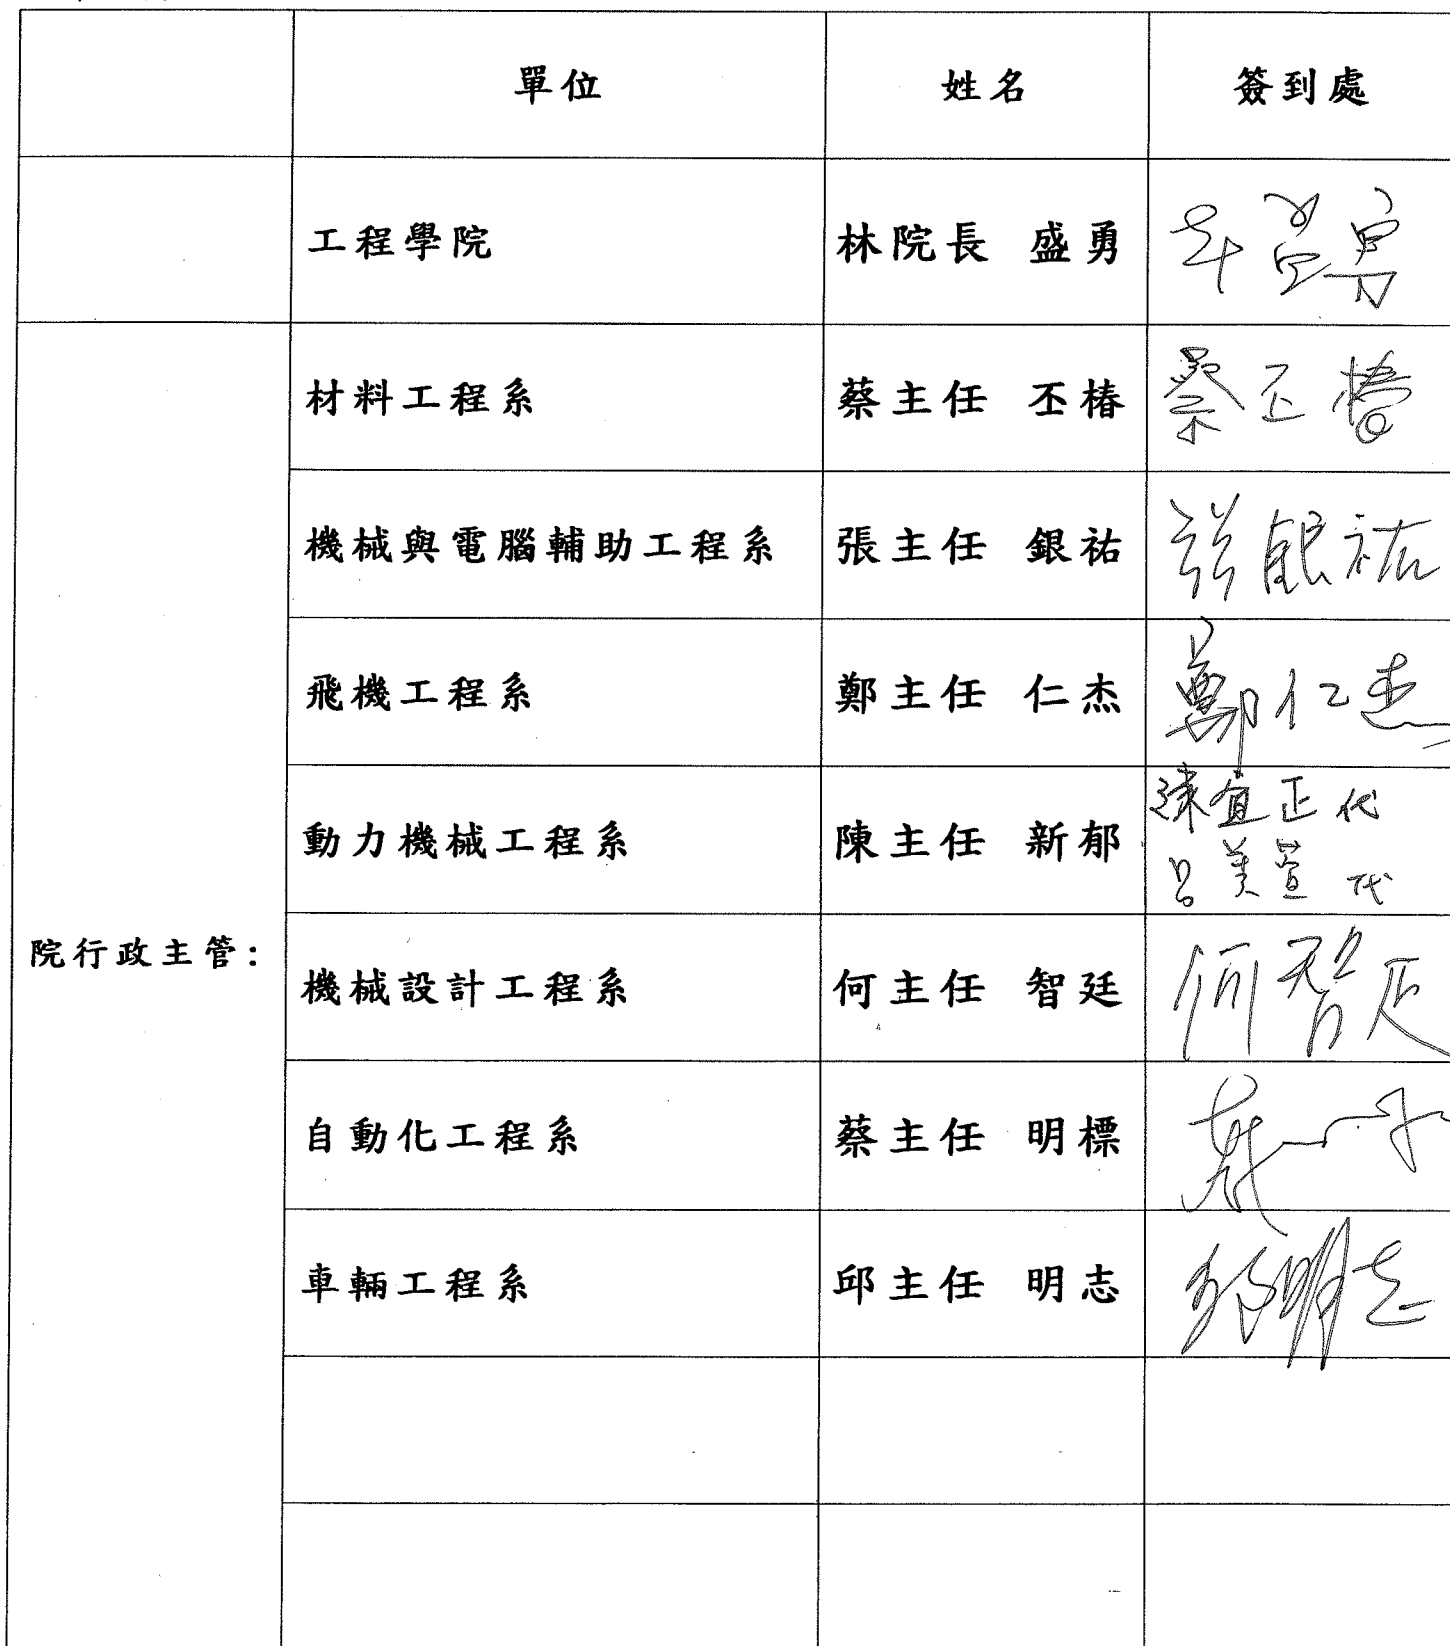 單位 姓名 簽到處
工程學院 林院長 盛勇 林盛勇
材料工程系 蔡主任 丕椿 蔡丕椿
機械與電腦輔助工程系 張主任 銀祐 張銀祐
飛機工程系 鄭主任 仁杰 鄭仁杰
動力機械工程系 陳主任 新郁 陳宜正代
呂美萱代
院行政主管:
機械設計工程系 何主任 智廷 何智廷
自動化工程系 蔡主任 明標
車輛工程系 邱主任 明志 邱明志